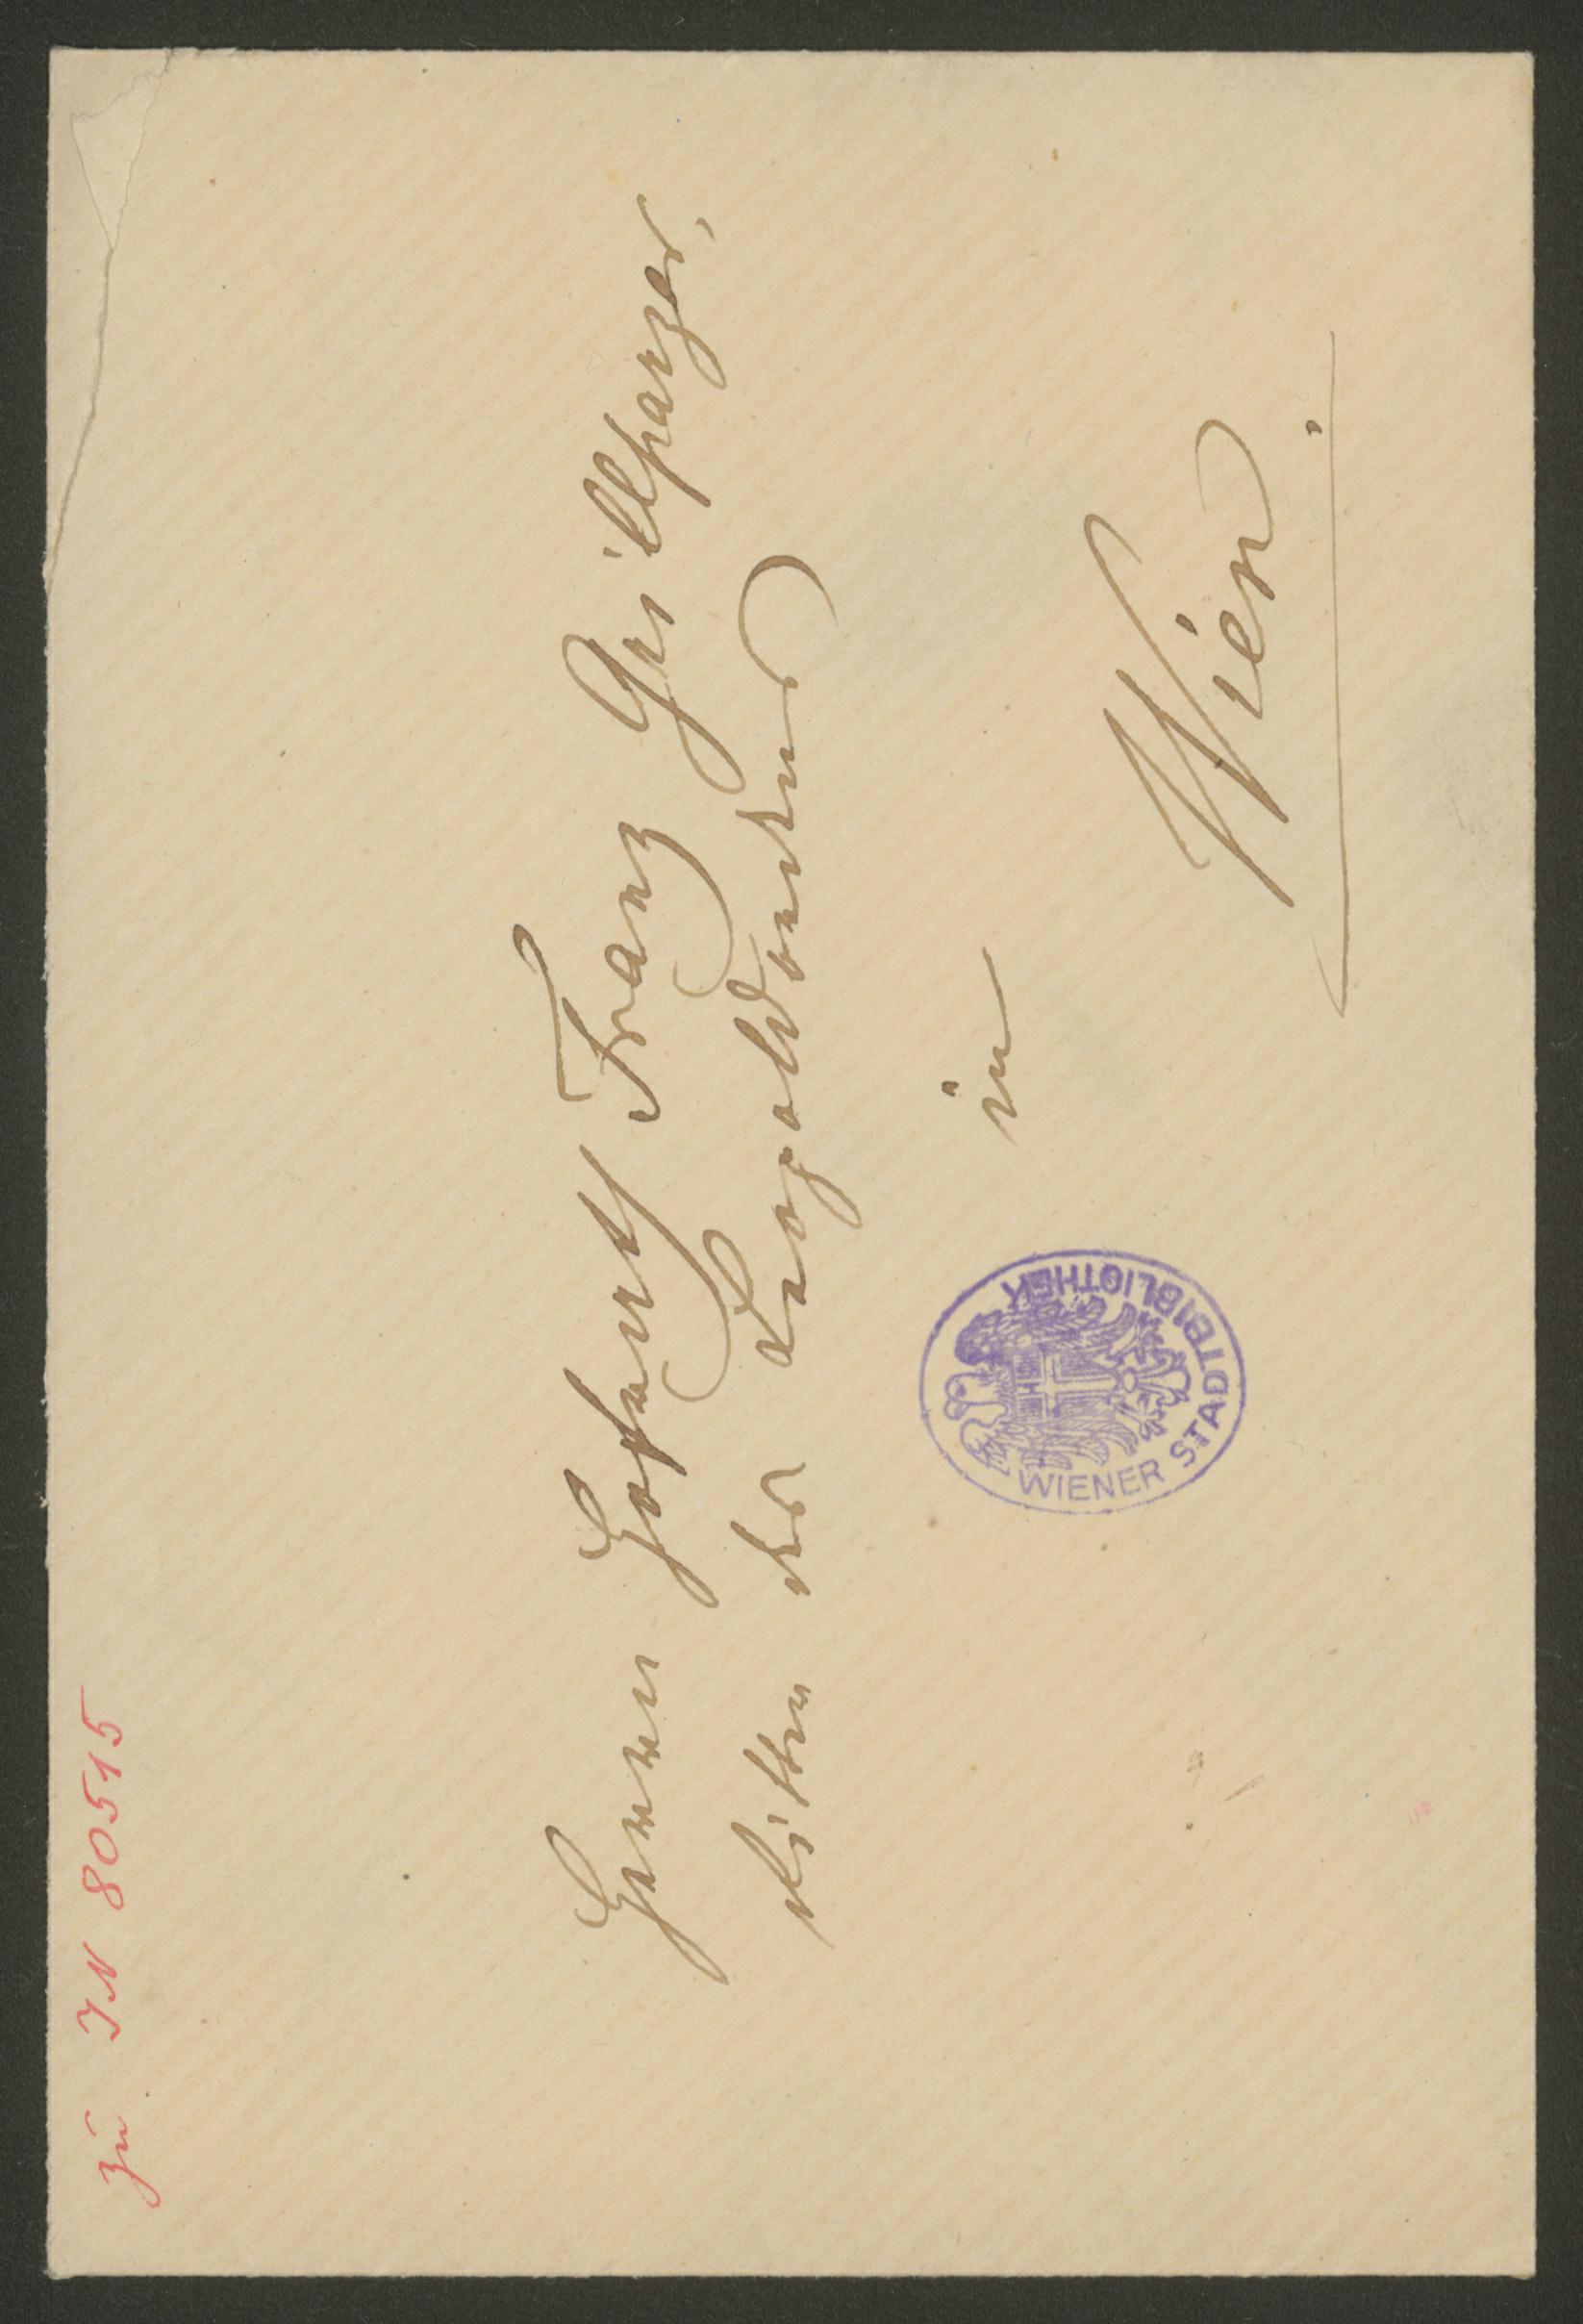 zu IN 80515
Herrn Hofrath Franz Grillparzer,
Ritter des Leopoldordens
in
Wien.
WIENER STADTBIBLIOTHEK